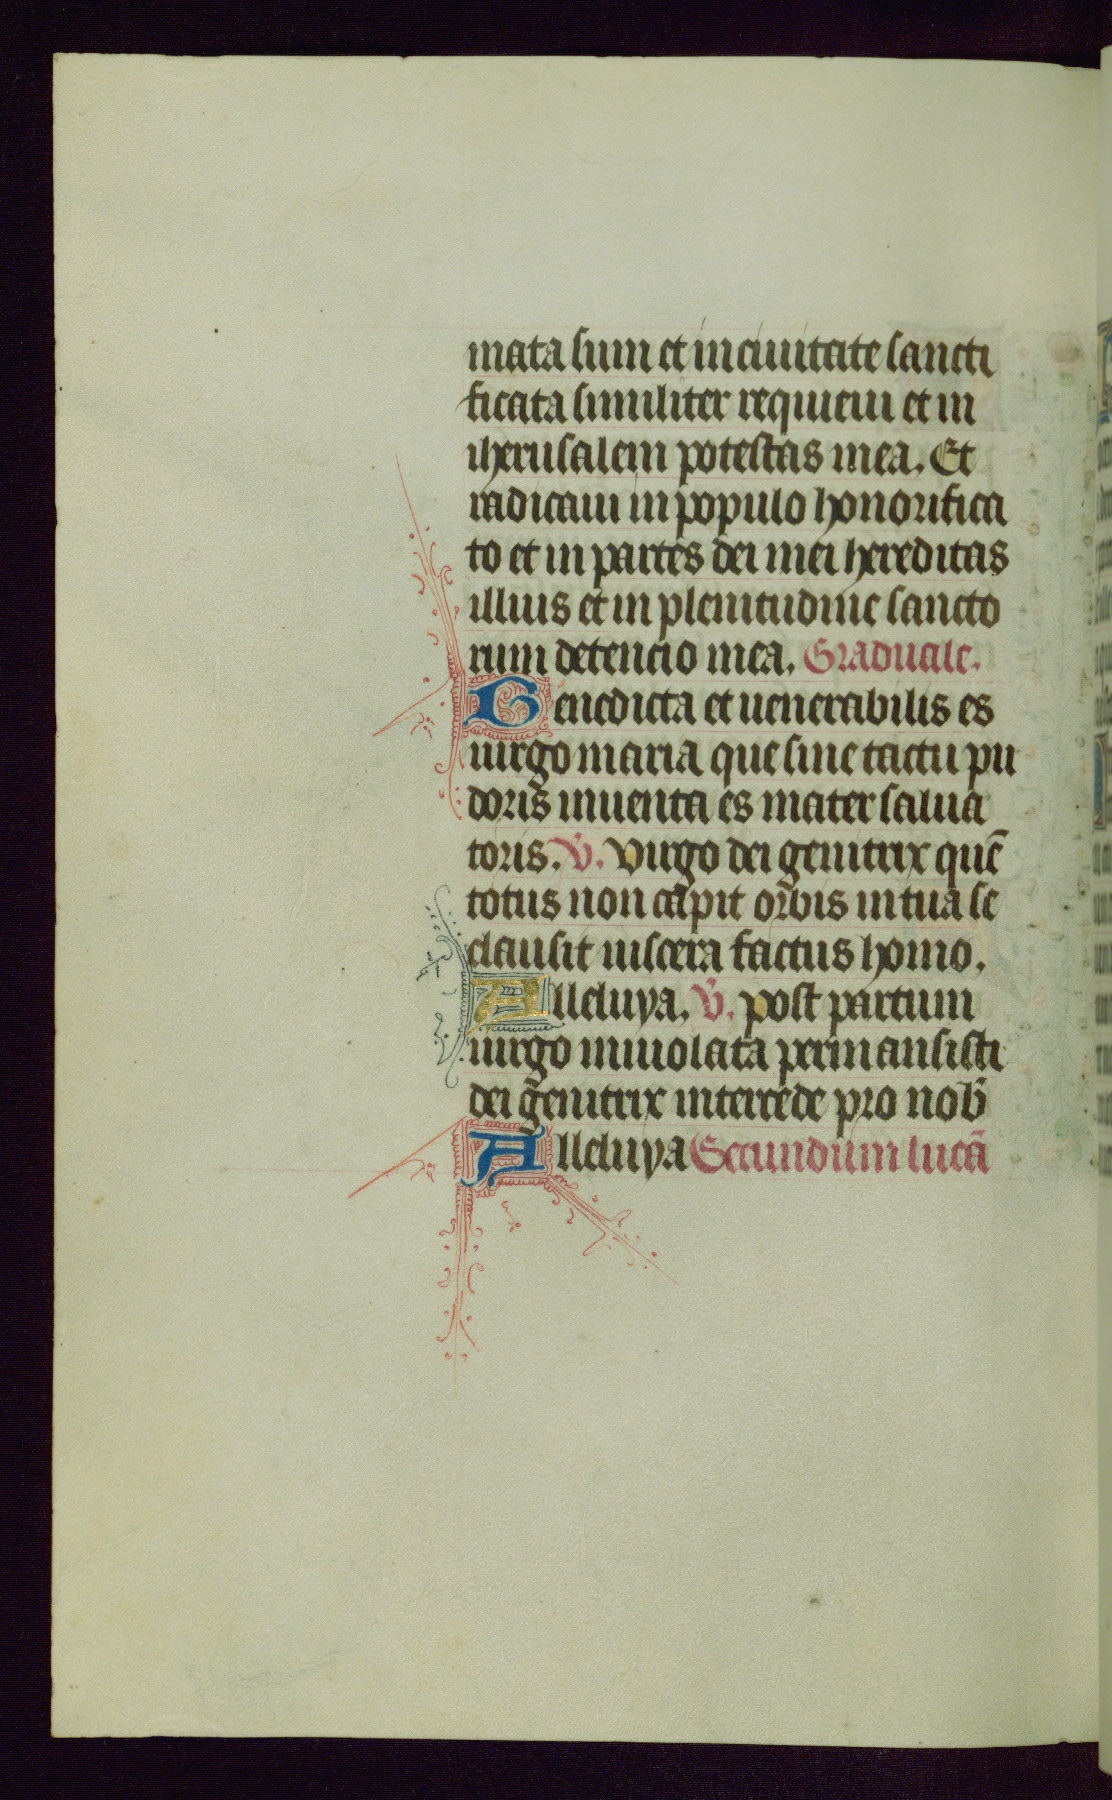 mata sum et in ciuitate sancti
ficata similiter requieui et in
iherusalem potestas mea. Et
radicaui in populo honorifica
to et in partes dei mei hereditas
illius et in plenitudine sancto
rum detencio mea. Graduale.
Benedicta et uenerabilis es
uirgo maria que sine tactu pu
doris inuenta es mater salua
toris. V. Virgo dei genitrix quē
totus non capit orbis in tua se
clausit uiscera factus homo.
Alleluya. V. post partum
uirgo inuiolata permansisti
dei genitrix intercede pro nob̄
Alleluya Secundum lucā